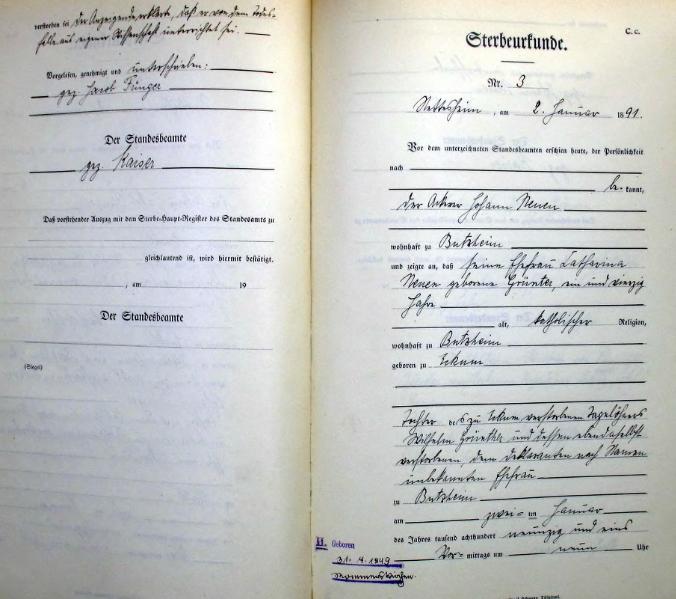 verstorben sei. Der Anzeigende erklärte, daß er von dem Todes-
falle aus eigener Wissenschaft unterrichtet sei.
Vorgelesen, genehmigt und unterschrieben:
gez. Jacob Finger
Der Standesbeamte
gez. Kaiser
Daß vorstehender Auszug mit dem Sterbe-Haupt-Register des Standesamts zu
gleichlautend ist, wird hiermit bestätigt.
, am 19
Der Standesbeamte
(Siegel)
C.c.
Sterbeurkunde.
Nr. 3
Nettesheim, am 2. Januar 1891.
Vor dem unterzeichneten Standesbeamten erschien heute, der Persönlichkeit
nach
be- kannt,
der Ackerer Johann Neuen
wohnhaft zu Butzheim
und zeigte an, daß seine Ehefrau Catharina
Neuen geborene Grünter, ein und vierzig
Jahre
alt, katholischer Religion,
wohnhaft zu Butzheim
geboren zu Eckum
Tochter des zu Eckum verstorbenen Tagelöhners
Wilhelm und dessen ebendaselbst
verstorbenen, dem Deklaranten nach Namen
unbekannten Ehefrau
zu Butzheim
am zwei- ten Januar
des Jahres tausend achthundert neunzig und eins
Vor- mittags um neun Uhr
H. Geboren
31. 4. 1849
Rommerskirchen.